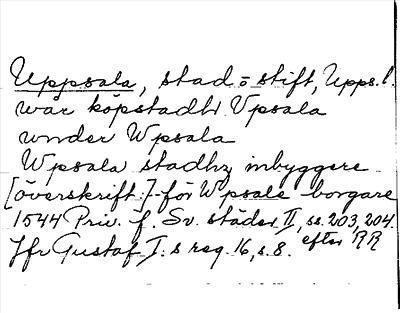 Uppsala, stad o stift, Upps. l.
wår köpstadh Vpsala
wnder Wpsala
Wpsala stadhz inbyggere
[överskrift:] för Wpsale borgare
1544 Priv. f. Sv. städer II, ss. 203, 204.
Jfr Gustaf I:s reg. 16, s. 8. efter RR